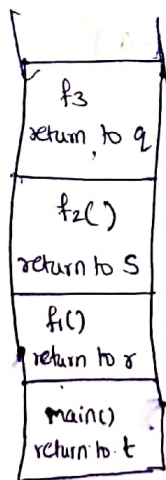 f3
return, to q
f2()
return to S
f1()
return to r
main()
return to t